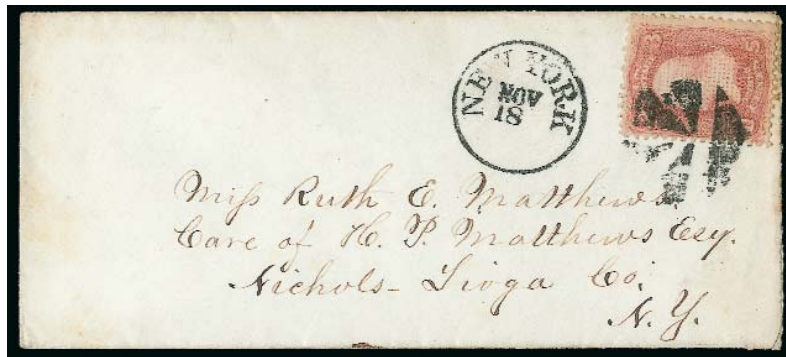 NEW YORK
NOV
18
3 3
Miss Ruth E. Matthews.
Care of H. P. Matthews Esq.
Nichols- Tioga Co.
N. Y.